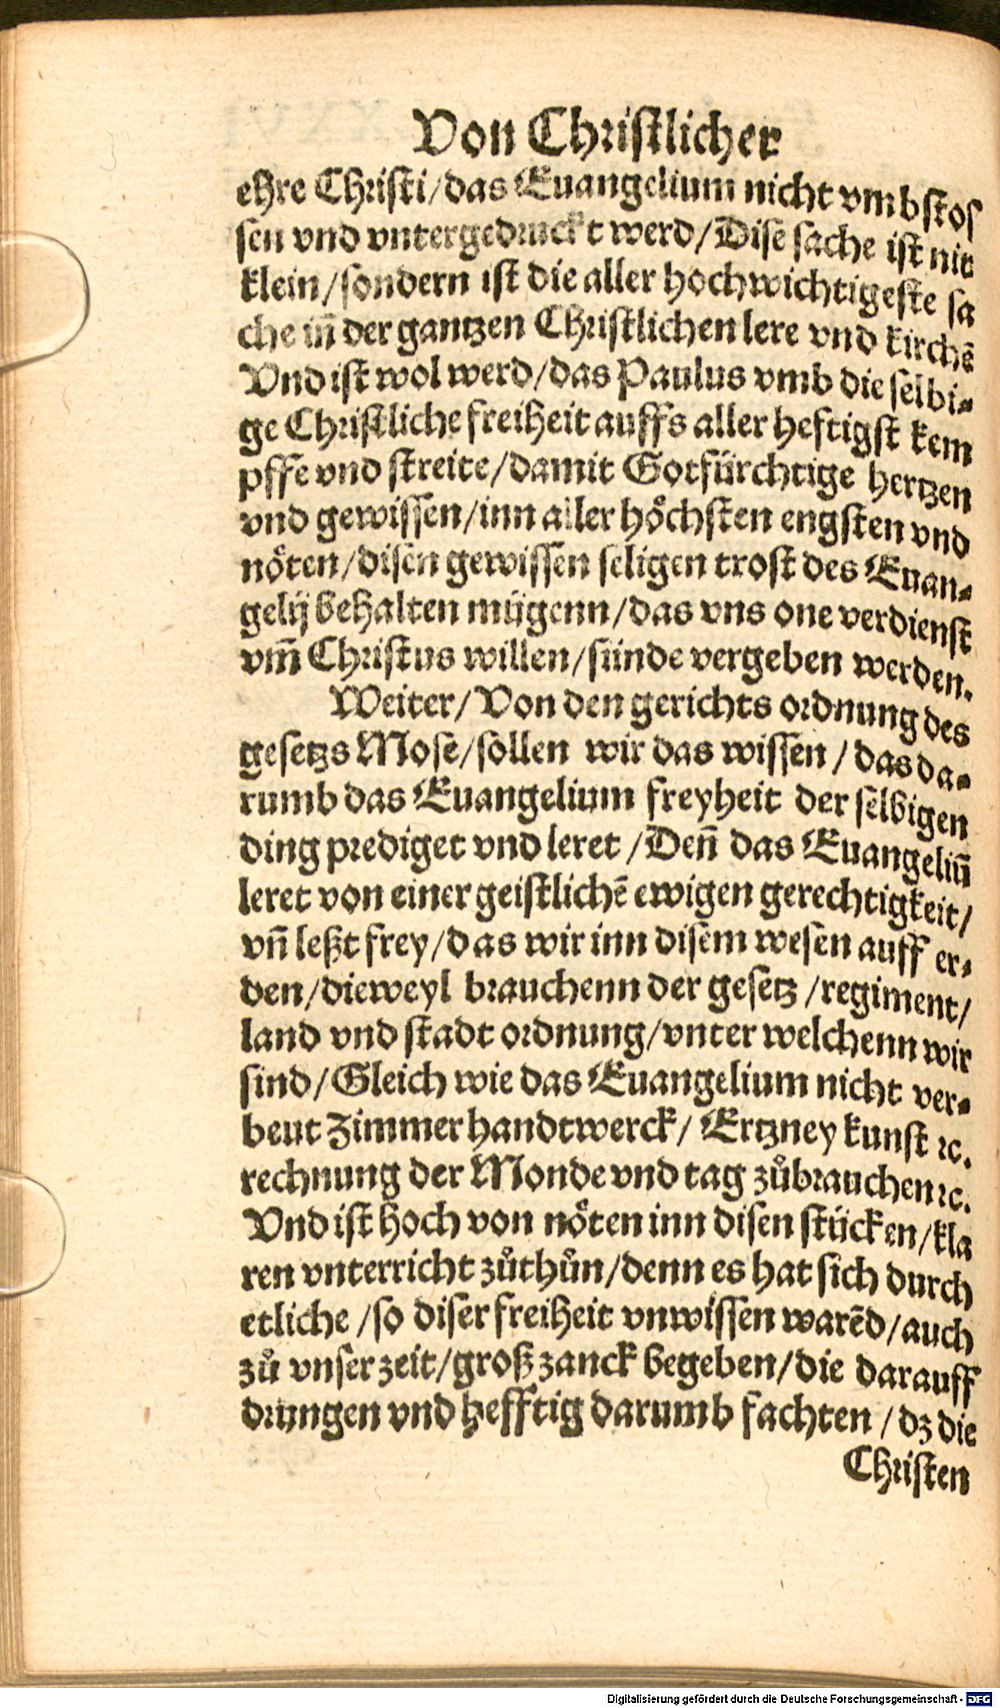 Von Christlicher
ehre Christi/das Euangelium nicht vmbstos
sen vnd vntergedruckt werd/Dise sache ist nit
klein/sondern ist die aller hochwichtigeste sa
che iñ der gantzen Christlichen lere vnd kirchē
Vnd ist wol werd/das Paulus vmb die selbi⸗
ge Christliche freiheit auffs aller heftigst kem
pffe vnd streite/damit Gotfürchtige hertzen
vnd gewissen/inn aller höchsten engsten vnd
nöten/disen gewissen seligen trost des Euan⸗
gelij behalten mügenn/das vns one verdienst
vm̃ Christus willen/sünde vergeben werden.
Weiter/Von den gerichts ordnung des
gesetzs Mose/sollen wir das wissen/das da⸗
rumb das Euangelium freyheit der selbigen
ding prediget vnd leret/Deñ das Euangeliũ
leret von einer geistlichē ewigen gerechtigkeit/
vñ leßt frey/das wir inn disem wesen auff er⸗
den/dieweyl brauchenn der gesetz/regiment/
land vnd stadt ordnung/vnter welchenn wir
sind/Gleich wie das Euangelium nicht ver⸗
beut Zimmer handtwerck/Ertzney kunst ꝛc.
rechnung der Monde vnd tag zůbrauchen ꝛc.
Vnd ist hoch von nöten inn disen stücken/kla
ren vnterricht zůthůn/denn es hat sich durch
etliche/so diser freiheit vnwissen warēd/auch
zů vnser zeit/groß zanck begeben/die darauff
drungen vnd hefftig darumb fachten/dz die
Christen
Digitalisierung gefördert durch die Deutsche Forschungsgemeinschaft - DFG